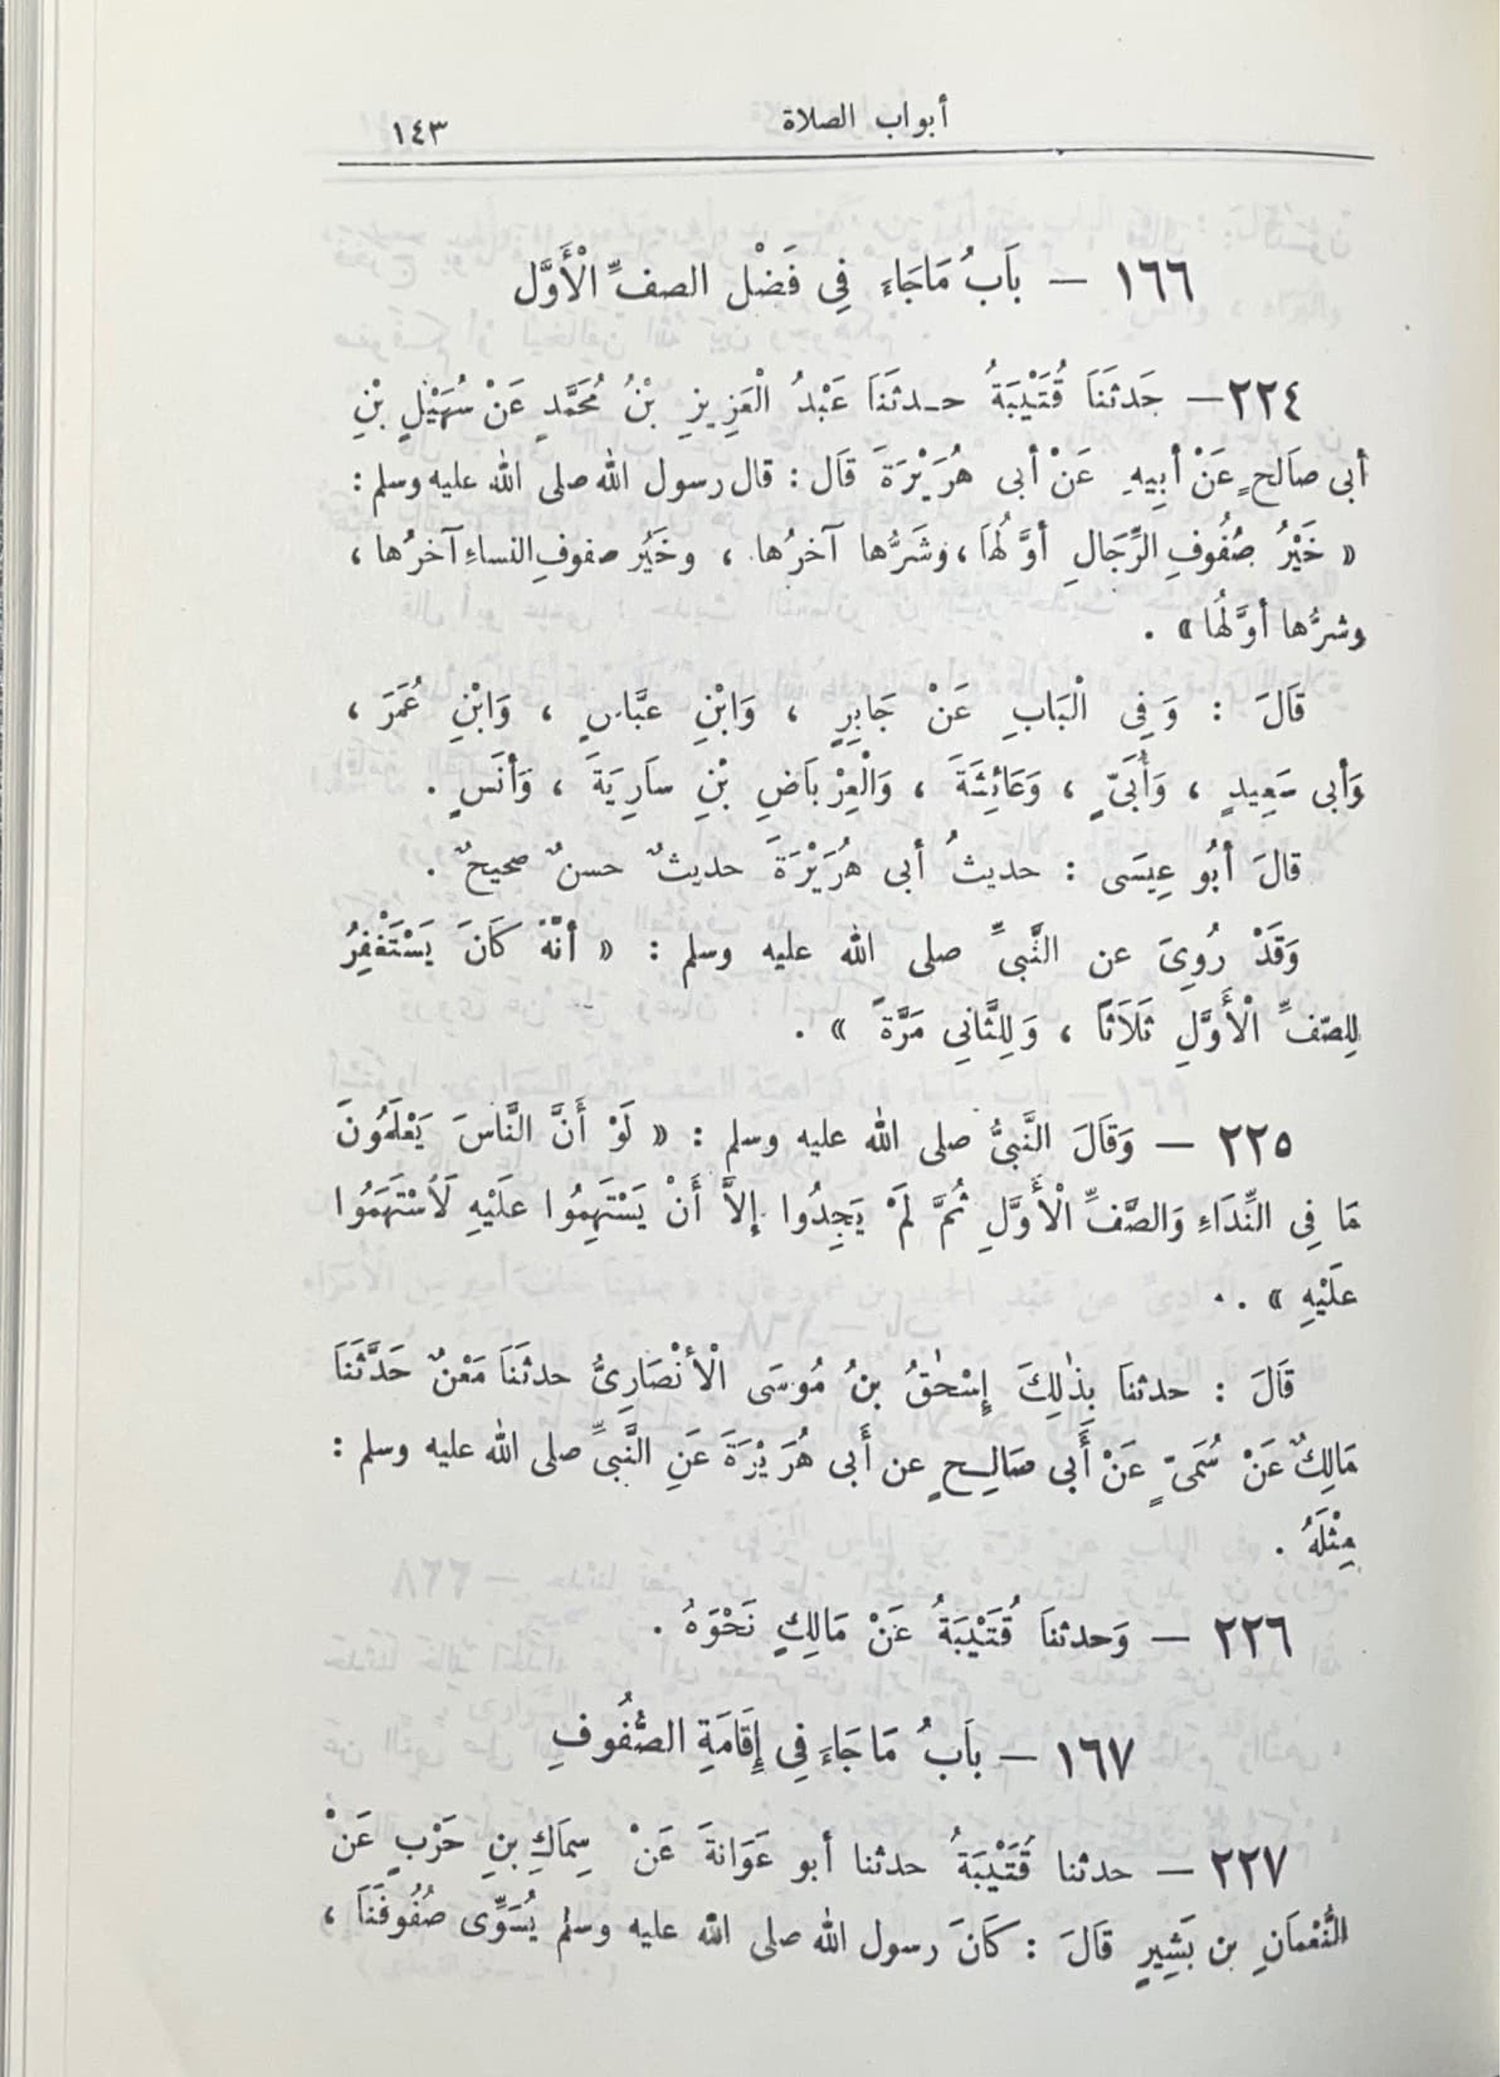 أبواب الصلاة ١٤٣
١٦٦ – بَابُ مَا جَاءَ فِي فَضْل الصفِّ الْأَوَّل
٢٢٤ – حَدثَنَا قُتَيْبَةُ حدثَنَا عَبْدُ الْعَزِيزِ بْنُ مُحَمَّدٍ عَنْ سُهَيْلِ بْنِ
أبى صَالحٍ عَنْ أبِيهِ عَنْ أبى هُرَيْرَةَ قَال : قال رسول الله صلى الله عليه وسلم :
« خَيْرُ صُفُوفِ الرِّجَالِ أوَّلُهَا ، وشَرُّها آخرُها ، وخَيْر صفوفِ النساءِ آخرُها ،
وشرُّها أوَّلُهَا » .
قَالَ : وَفِي الْبَابِ عَنْ جَابِرٍ ، وَابْنِ عبَّاسٍ ، وَابْنِ عُمَرَ ،
وَأبى سَعِيدٍ ، وَأُبَىٍّ ، وَعَائِشَةَ ، وَالْعِرْبَاضِ بْنِ سَارِيَةَ ، وَأنَسٍ .
قالَ أبُو عِيسَى : حديثُ أبى هُرَيْرَةَ حديثٌ حسنٌ صحيحٌ .
وَقَدْ رُوِيَ عن النَّبىِّ صلى الله عليه وسلم : « أنّهُ كَانَ يَسْتَغْفِرُ
لِلصّفِّ الْأَوَّلِ ثَلَاثًا ، وَلِلثَّانِى مَرَّةً » .
٢٢٥ – وَقَالَ النَّبىُّ صلى الله عليه وسلم : « لَوْ أَنَّ النَّاسَ يَعْلَمُونَ
مَا فِى النِّدَاءِ وَالصَّفِّ الْأَوَّلِ ثُمَّ لَمْ يَجِدُوا إِلاَّ أَنْ يَسْتَهِمُوا علَيْهِ لَاسْتَهَمُوا
علَيْهِ » .
قَالَ : حدثنَا بِذٰلِكَ إِسْحٰقُ بنُ مُوسَى الْأنْصَارِىُّ حدثَنَا مَعْنٌ حَدَّثَنَا
مَالِكٌ عَنْ سُمَىٍّ عَنْ أَبى صَالِحٍ عن أَبى هُرَيْرَةَ عَنِ النَّبىِّ صلى الله عليه وسلم :
مِثْلَهُ .
٢٢٦ – وَحدثنَا قُتَيْبَةُ عَنْ مَالِكٍ نَحْوَهُ .
١٦٧ – بَابُ مَا جَاءَ فِي إِقَامَةِ الصُّفُوفِ
٢٢٧ – حدثنا قُتَيْبَةُ حدثنا أبو عَوَانَةَ عَنْ سِمَاكِ بنِ حَرْبٍ عَنْ
النُّعْمَانِ بن بَشِيرٍ قَالَ : كَانَ رسول الله صلى الله عليه وسلم يُسَوِّى صُفُوفَنَا ،